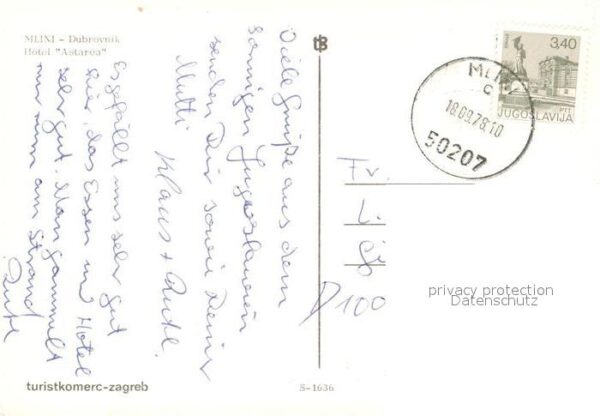 MLINI - Dubrovnik
Hotel "Astarea"
Viele Grüße aus dem
sonnigen Jugoslawien
senden Dir sowie Deiner
Mutti
Klaus + Ruth.
Es gefällt uns sehr gut
hier, das Essen im Hotel
sehr gut. Man gammelt
nur am Strand.
Ruth
turistkomerc-zagreb
S-1636
3,40
PTT
JUGOSLAVIJA
MLINI
c
18.09.78.10
50207
Fr.
L.
D 100
privacy protection
Datenschutz